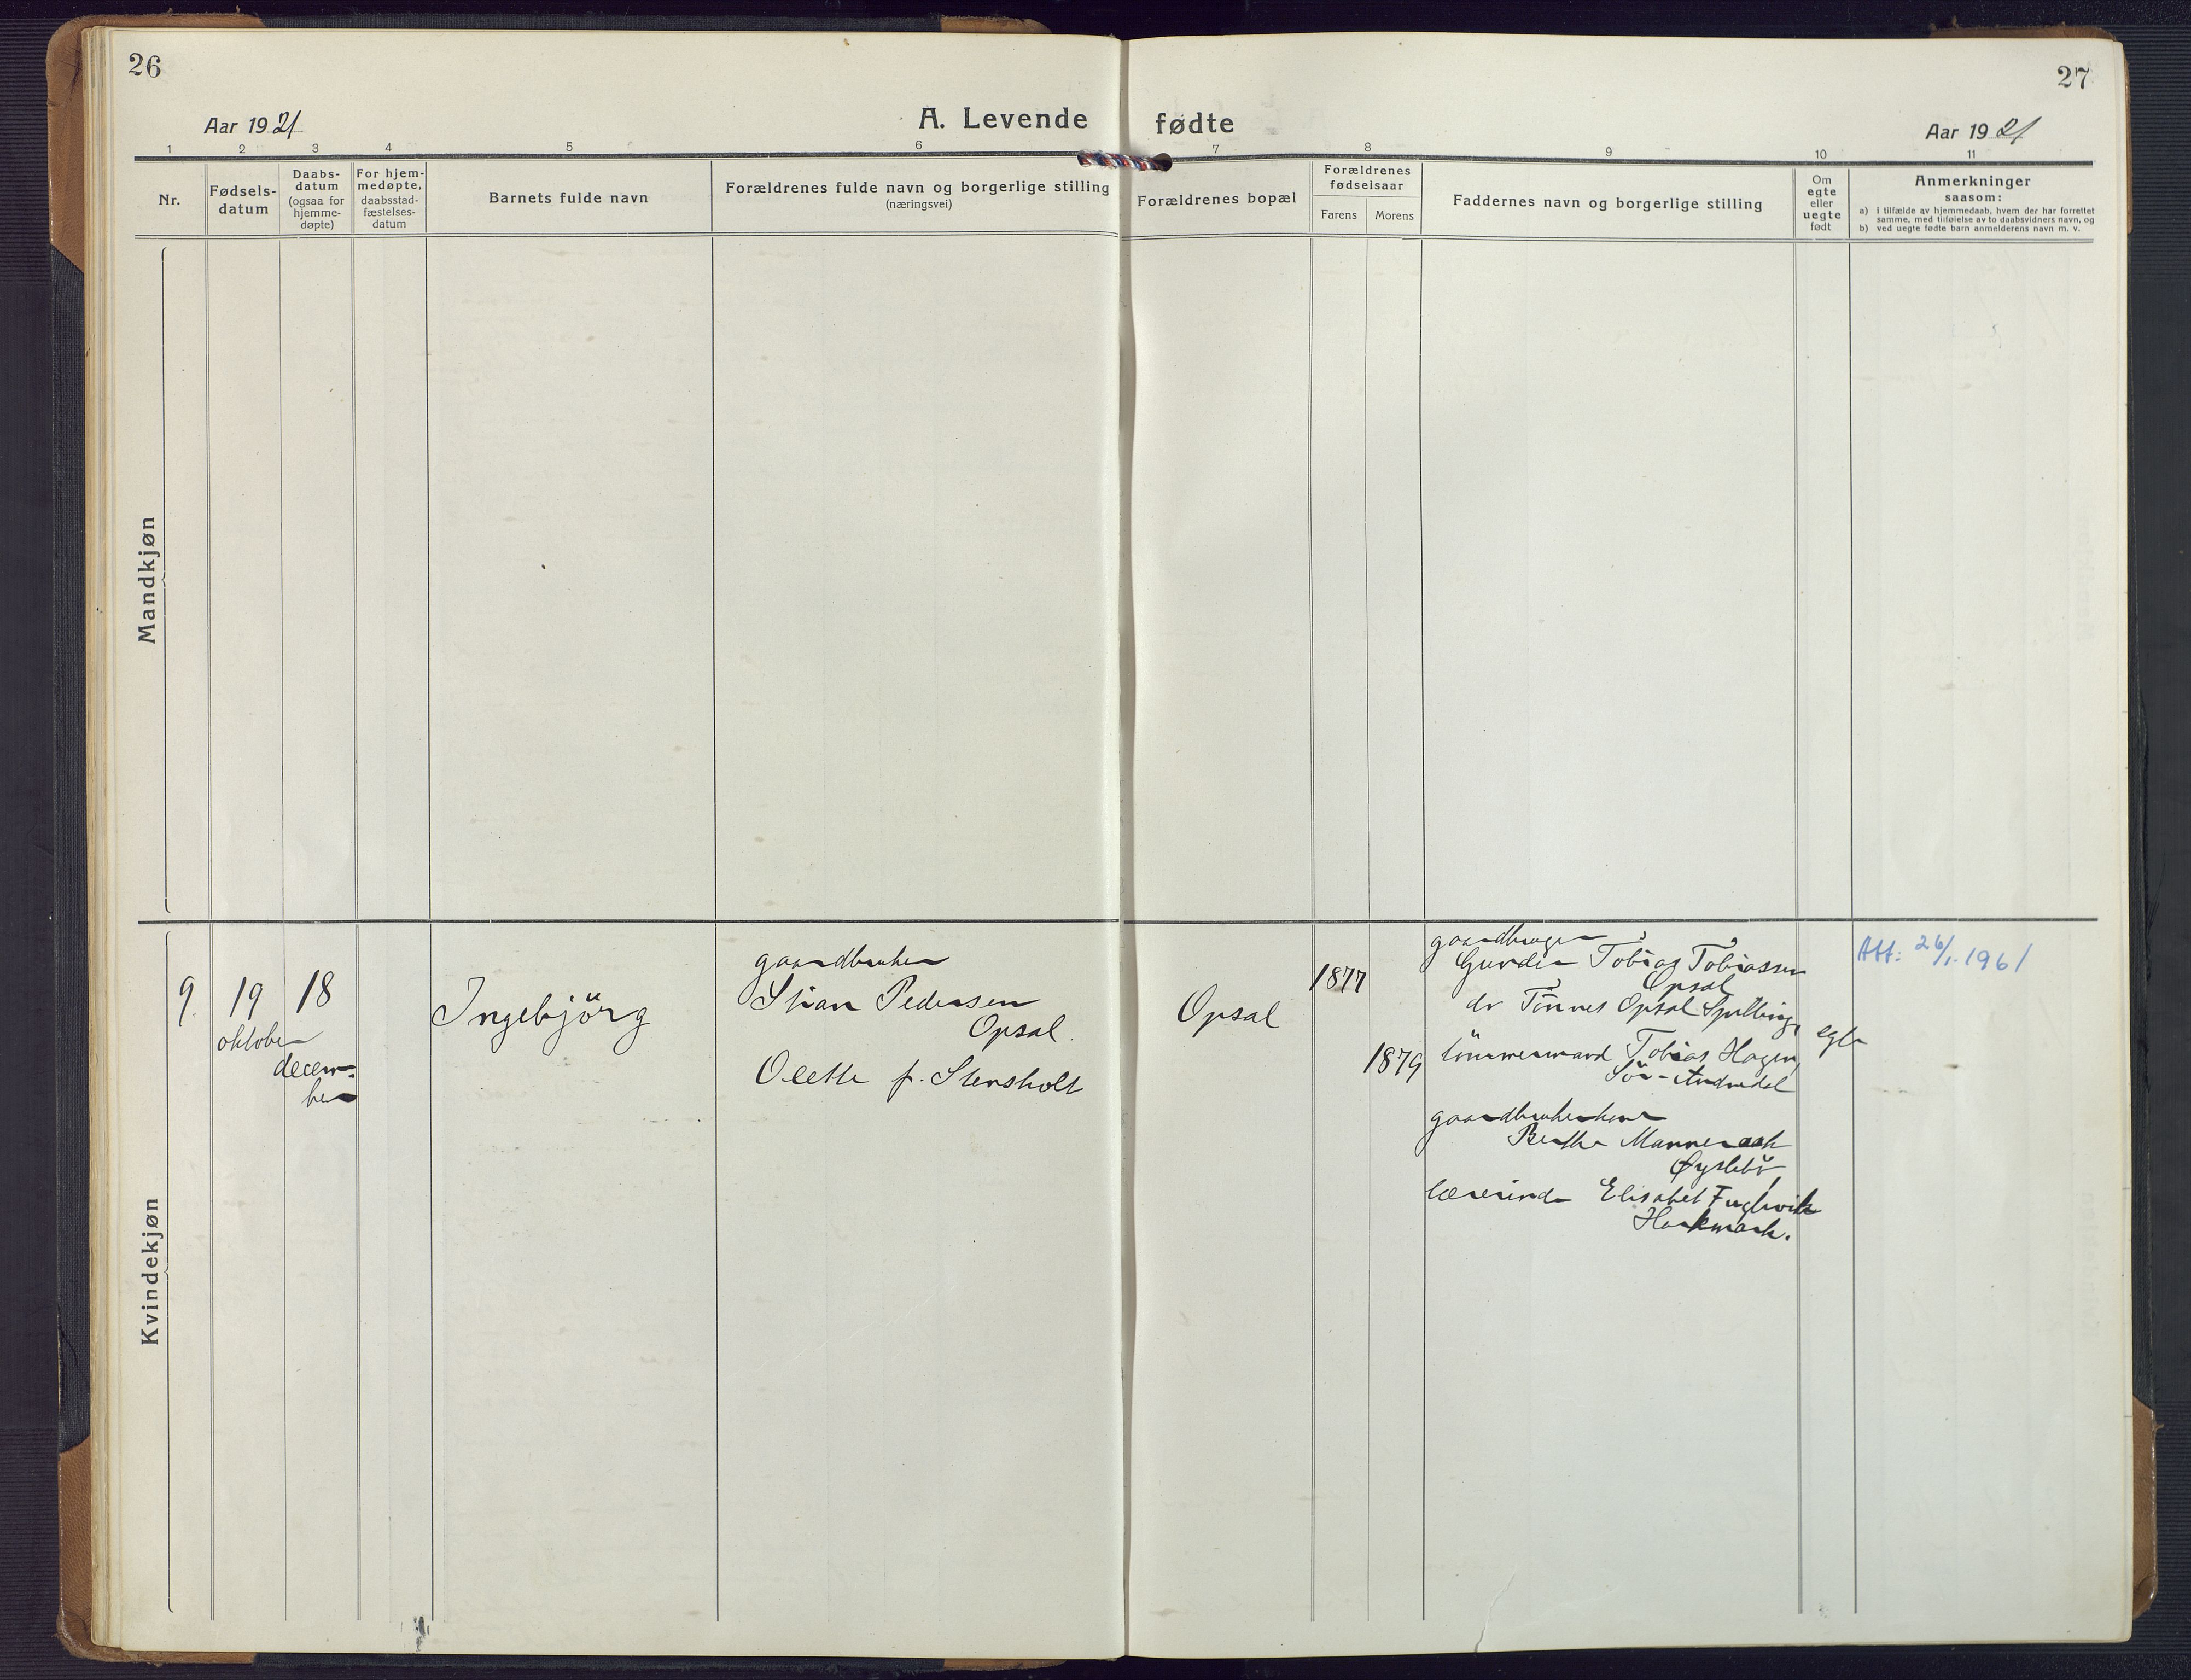 26
27
Aar 1921
A. Levende fødte
Aar 1921
1 2 3 4 5 6 7 8 9 10 11
Nr.
Fødsels-
datum
Daabs-
datum
(ogsaa for
hjemme-
døpte)
For hjem-
medøpte,
daabsstad-
fæstelses-
datum
Barnets fulde navn
Forældrenes fulde navn og borgerlige stilling
(næringsvei)
Forældrenes bopæl
Forældrenes
fødselsaar
Farens
Morens
Faddernes navn og borgerlige stilling
Om
egte
eller
uegte
født
Anmerkninger
saasom:
a) i tilfælde av hjemmedaab, hvem der har forrettet
samme, med tilføielse av to daabsvidners navn, og
b) ved uegte fødte barn anmelderens navn m. v.
Mandkjøn
Kvindekjøn
9.
19
oktober
18
decem-
ber
Ingebjörg
gaardbruker
Stian Pedersen
Opsal.
Olette f. Stensholt
Opsal
1877
1879
gaardbruger
Gunder Tobias Tobiassen
Opsal
do Tönnes Opsal Spilling,
tömmermand Tobias Hagen,
Sör-Audnedal
gaardbrukerkone
Berthe Manneraak
Øyslebö
lærerinde Elisabet Fuglevik
Haakmark.
egte
Att: 26/1. 1961